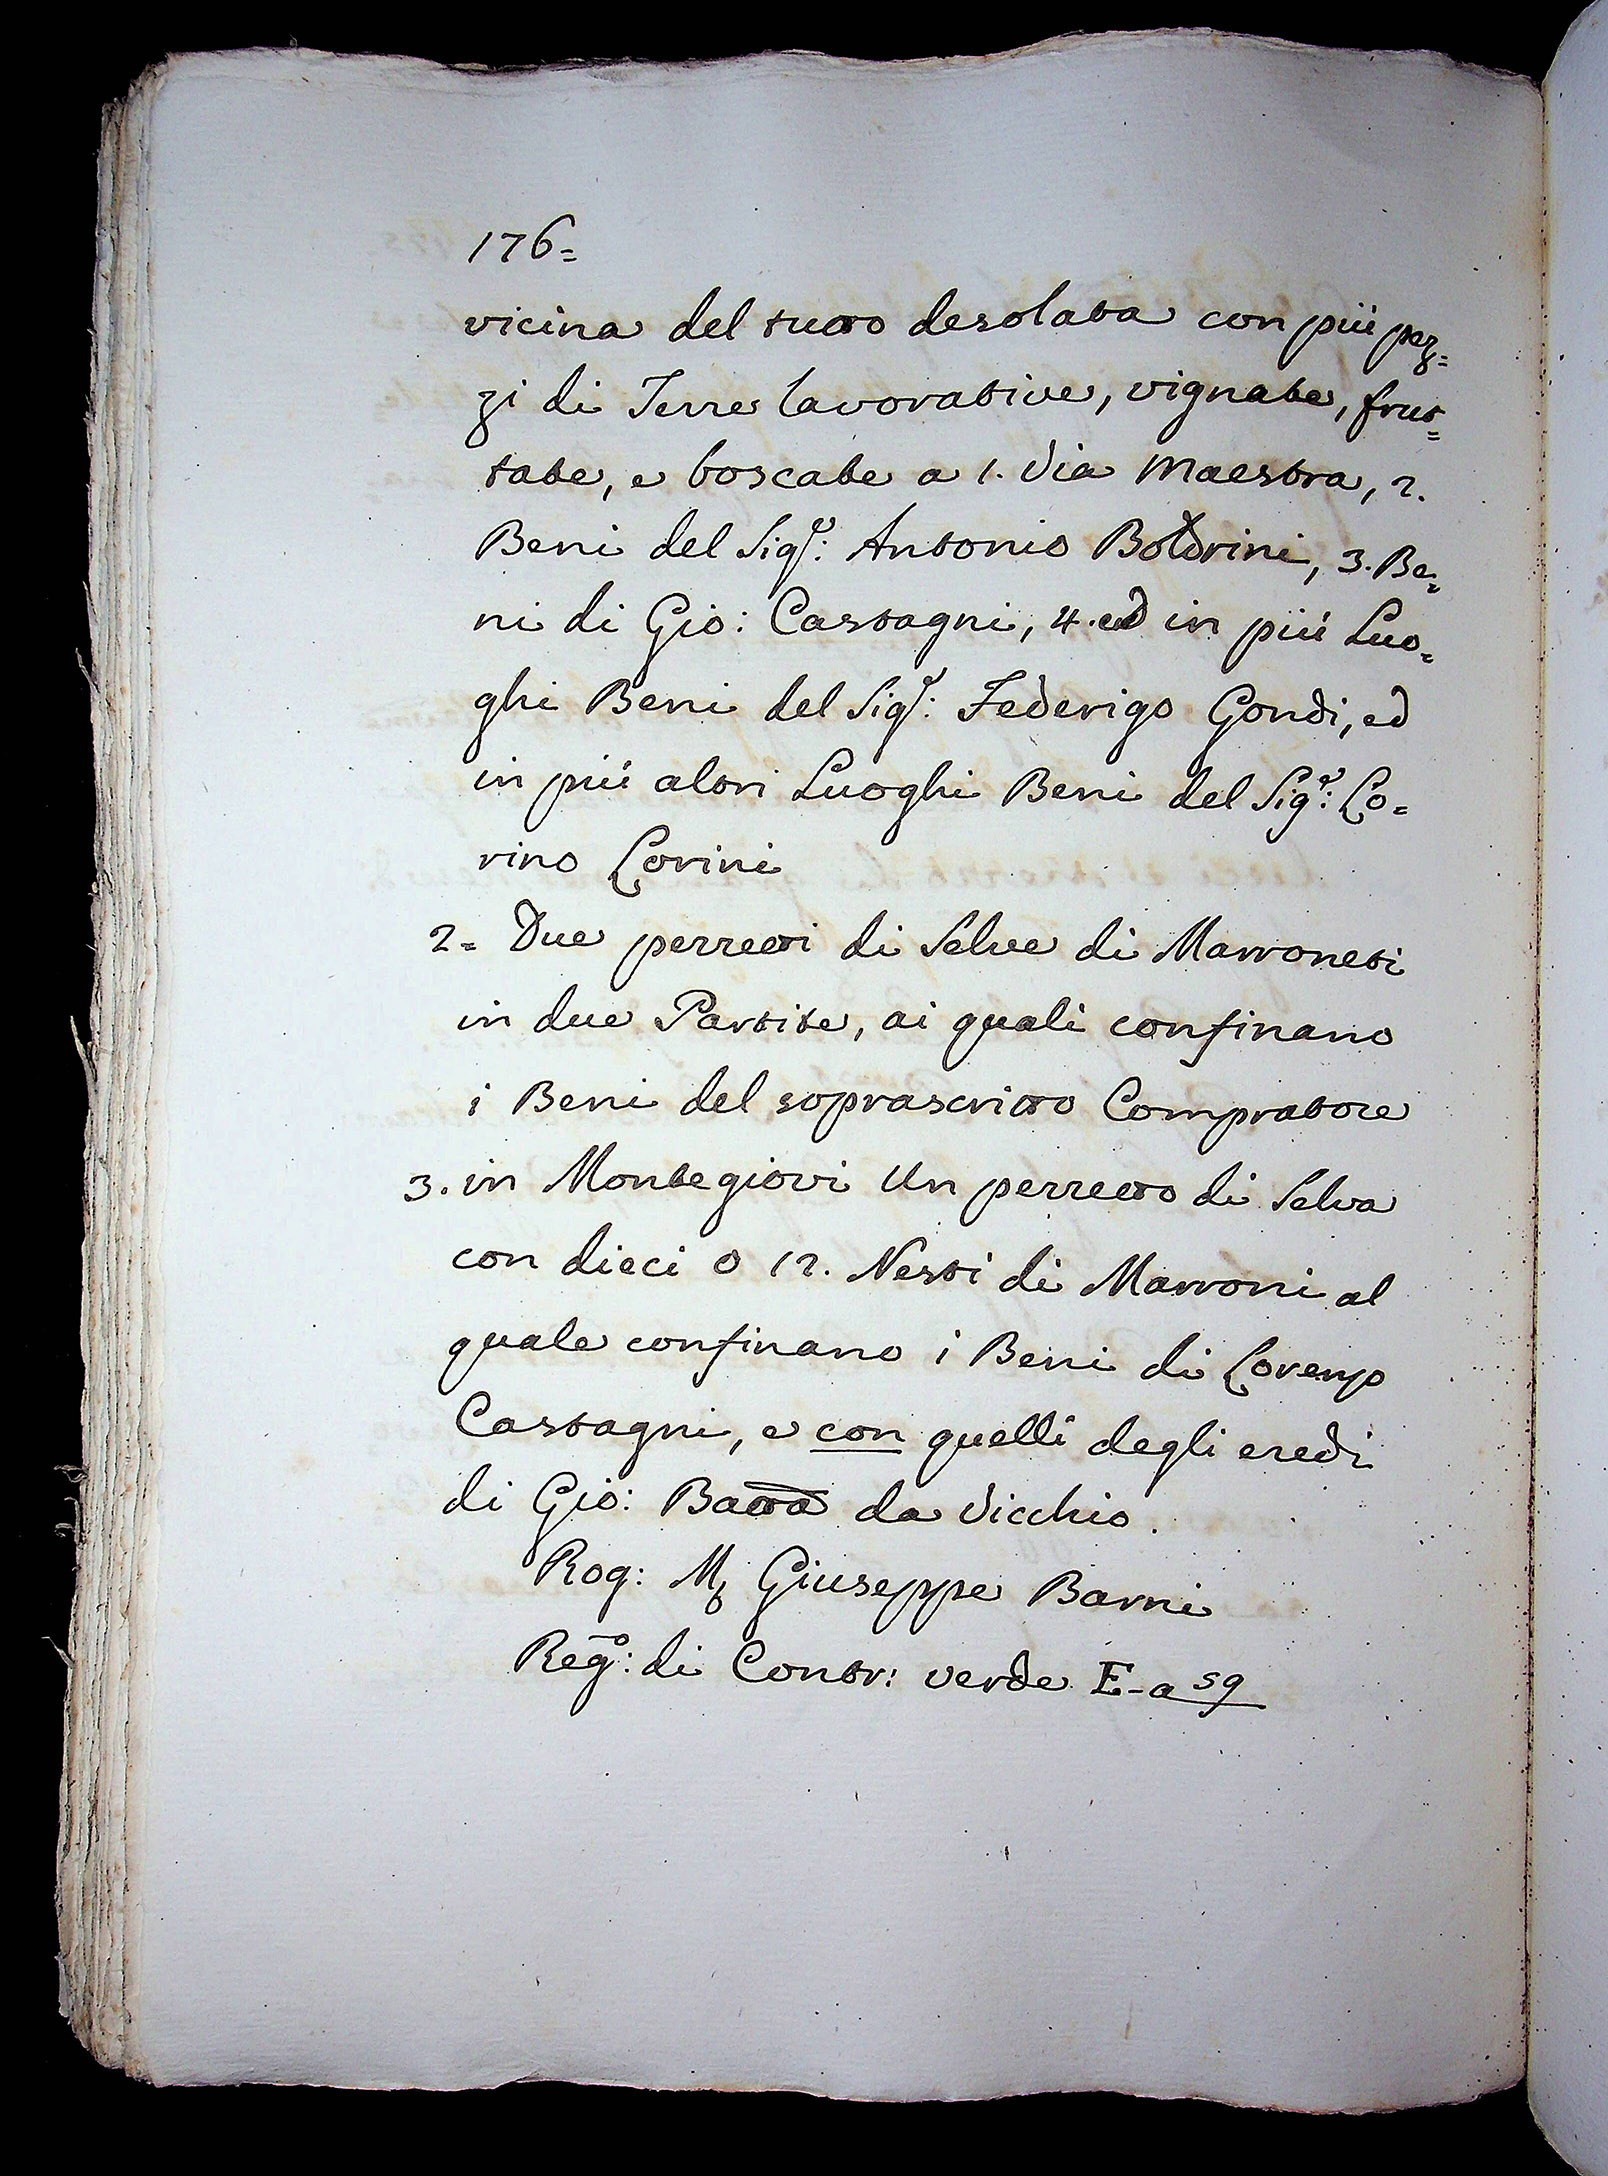 176=
vicina del tutto desolata con più pez=
zi di Terre lavorative, vignate, frut=
tate, e boscate a 1. Via Maestra, 2.
Beni del Sig.r: Antonio Boldrini, 3. Be=
ni di Gio: Castagni, 4. ed in più Luo=
ghi Beni del Sig.r: Federigo Gondi, ed
in più altri Luoghi Beni del Sig.r: Lo=
rino Lorini
2= Due pezzetti di Selve di Marroneti
in due Partite, ai quali confinano
i Beni del soprascritto Compratore
3. in Montegiovi Un pezzetto di Selva
con dieci o 12. Nesti di Marroni al
quale confinano i Beni di Lorenzo
Castagni, e con quelli degli eredi
di Gio: Batta da Vicchio.
Rog: Mr Giuseppe Barni
Rego: di Contr: verde E-a 59